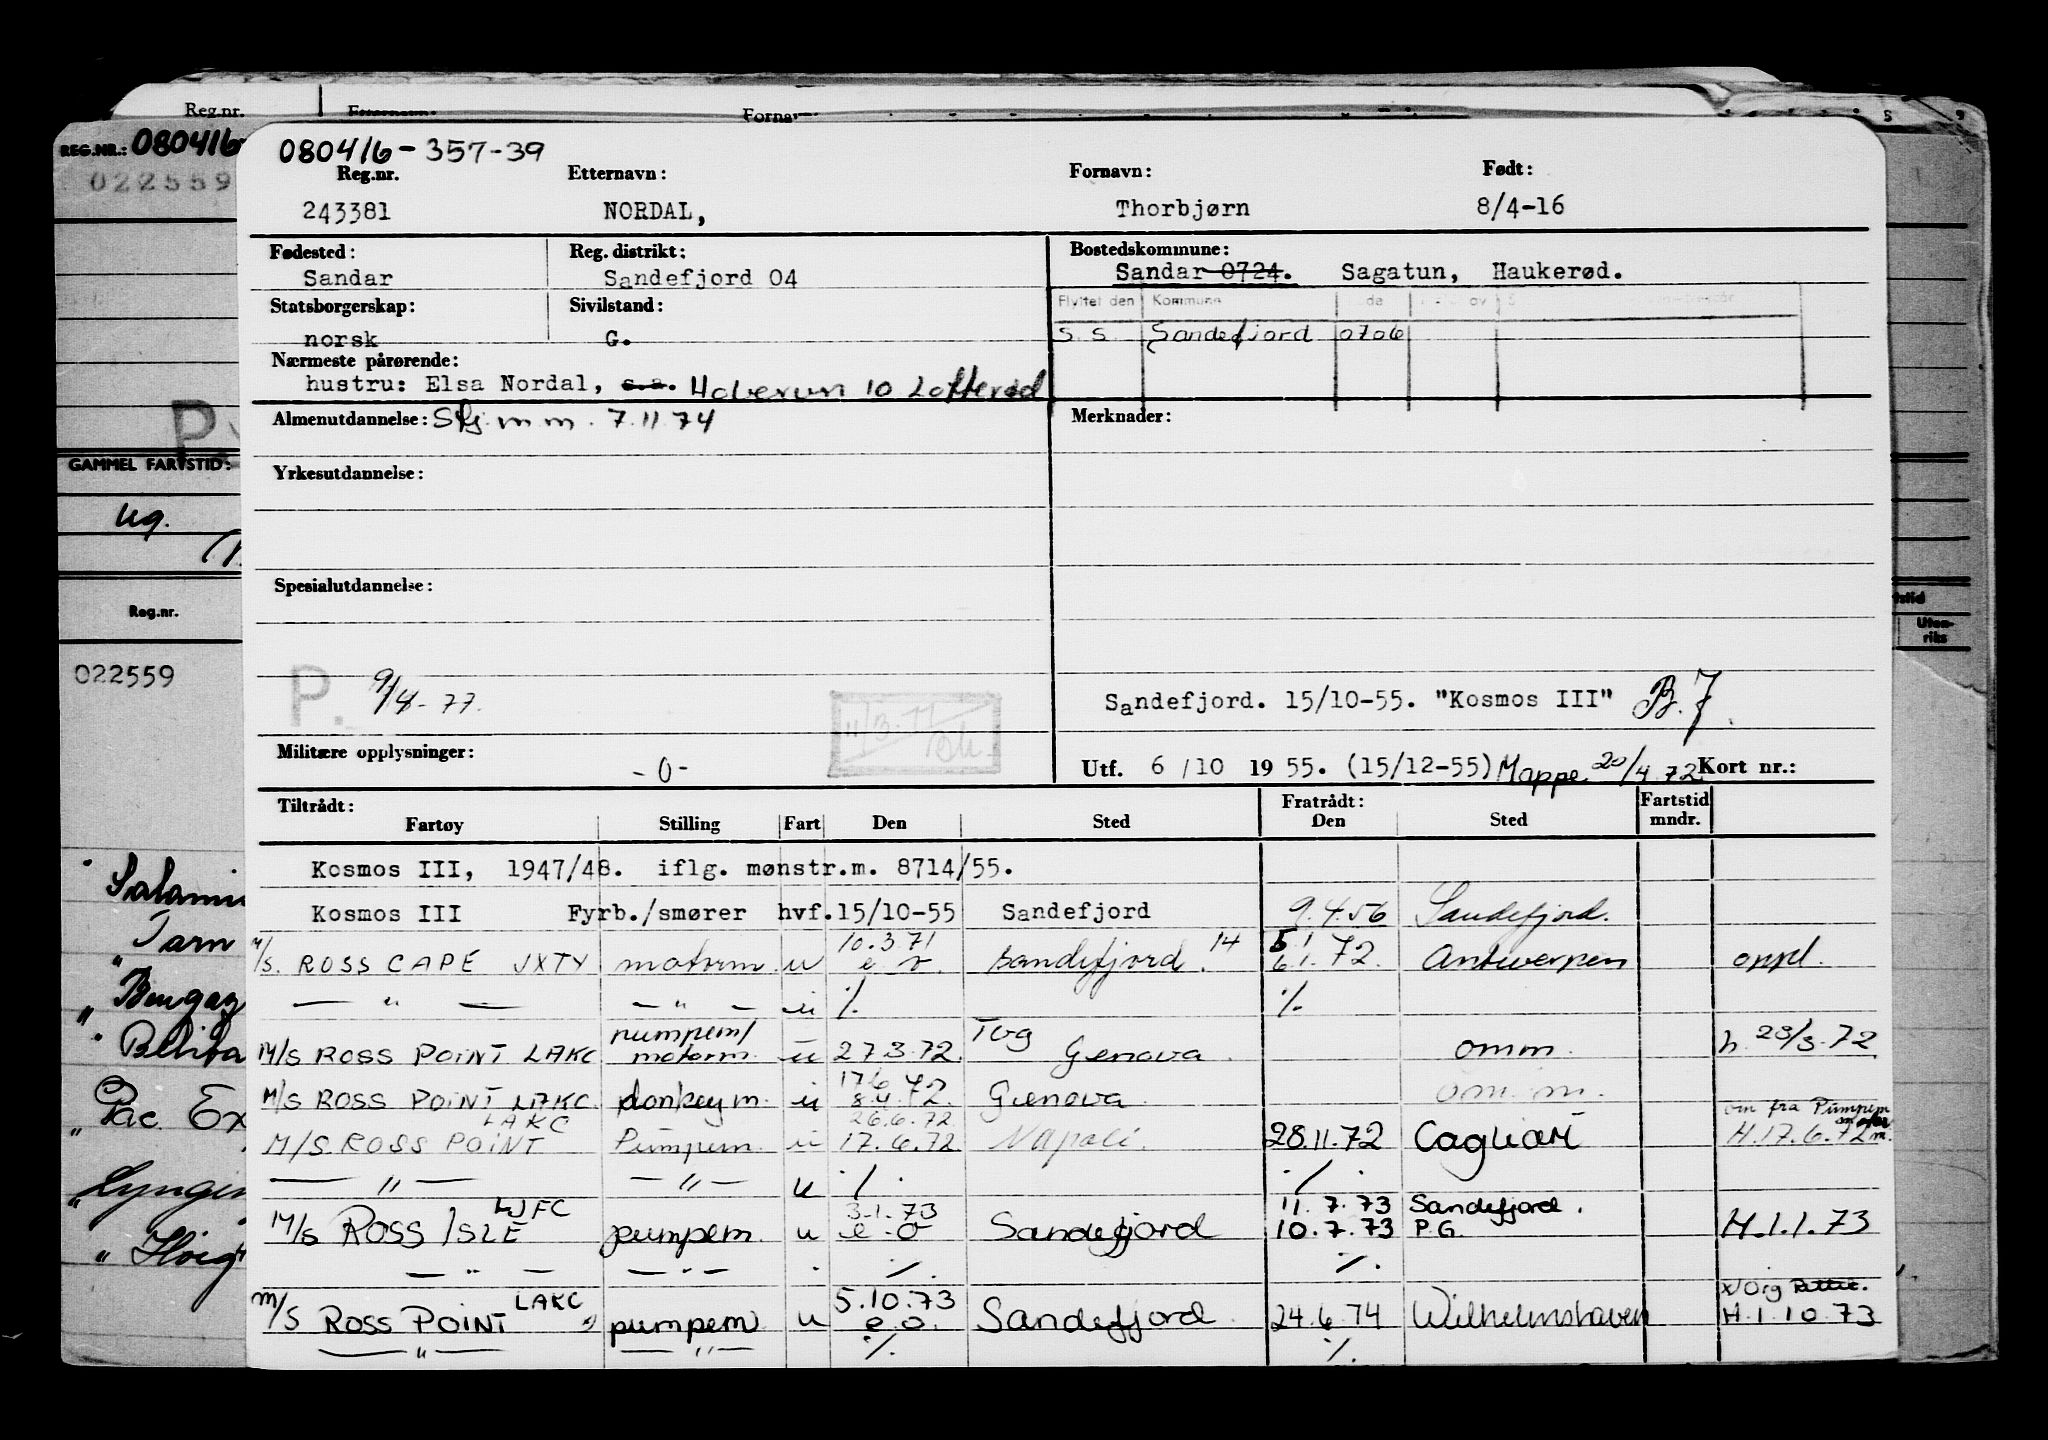 Reg.nr. Etternavn: Fornavn:
REG.NR.: 080416
022559
GAMMEL FARTSTID:
ug.
Reg.nr.
022559
" Tarn
Pac. Ex
Uten-
riks
080416-357-39
Reg.nr. Etternavn: Fornavn: Født:
243381 NORDAL, Thorbjørn 8/4-16
Fødested: Reg. distrikt: Bostedskommune:
Sandar Sandefjord 04 Sandar 0724. Sagatun, Haukerød.
Statsborgerskap: Sivilstand: Flyttet den Kommune
norsk G. S.S. Sandefjord 0706
Nærmeste pårørende:
hustru: Elsa Nordal, s.a. Haverun 10 Lofterød
Almenutdannelse: Sfj. m m. 7.11.74 Merknader:
Yrkesutdannelse:
Spesialutdannelse:
P. 9/4-77. Sandefjord. 15/10-55. "Kosmos III" B.7.
Militære opplysninger: -0- Utf. 6/10 1955. (15/12-55) Mappe 20/4.72 Kort nr.:
Tiltrådt: Fratrådt: Fartstid
Fartøy Stilling Fart Den Sted Den Sted mndr.
Kosmos III, 1947/48. iflg. mønstr.m. 8714/55.
Kosmos III Fyrb./smører hvf. 15/10-55 Sandefjord 9.4.56 Sandefjord.
10.3.71 14 5.1
M/S. ROSS CAPE JXTY motorm. u e o. Sandefjord. 6.1.72. Antwerpen oppl.
— " — — " — u ./. ./.
pumpem/ Tvg
M/S ROSS POINT LAKC motorm. u 27.3.72. Genova. omm. h. 28/3.72
17.6.72
M/S ROSS POINT LAKC. donkeym. u 8.4.72. Genova. om.m.
LAKC 26.6.72 om fra Pumpem
M/S. ROSS POINT Pumpem. u 17.6.72. Napoli. 28.11.72 Cagliari H.17.6.72
— " — — " — u ./. ./.
LJFC 3.1.73 11.7.73 Sandefjord.
M/S ROSS ISLE pumpem. u e.o Sandefjord 10.7.73 P.G. H.1.1.73
— " — — " — . ./. ./.
LAKC 5.10.73 x/org
M/S ROSS POINT pumpem u e.o. Sandefjord. 24.6.74 Wilhelmshaven H.1.10.73
— " — — " — ./. ./.